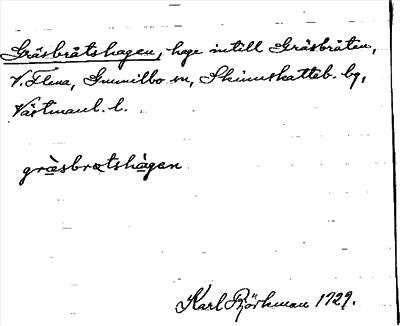 Gräsbråtshagen, hage intill Gräsbråten,
V. Flena, Gunnilbo sn, Skinnskatteb. bg,
Västmanl. l.
gràsbrotshàgan
Karl Björkman 1929.